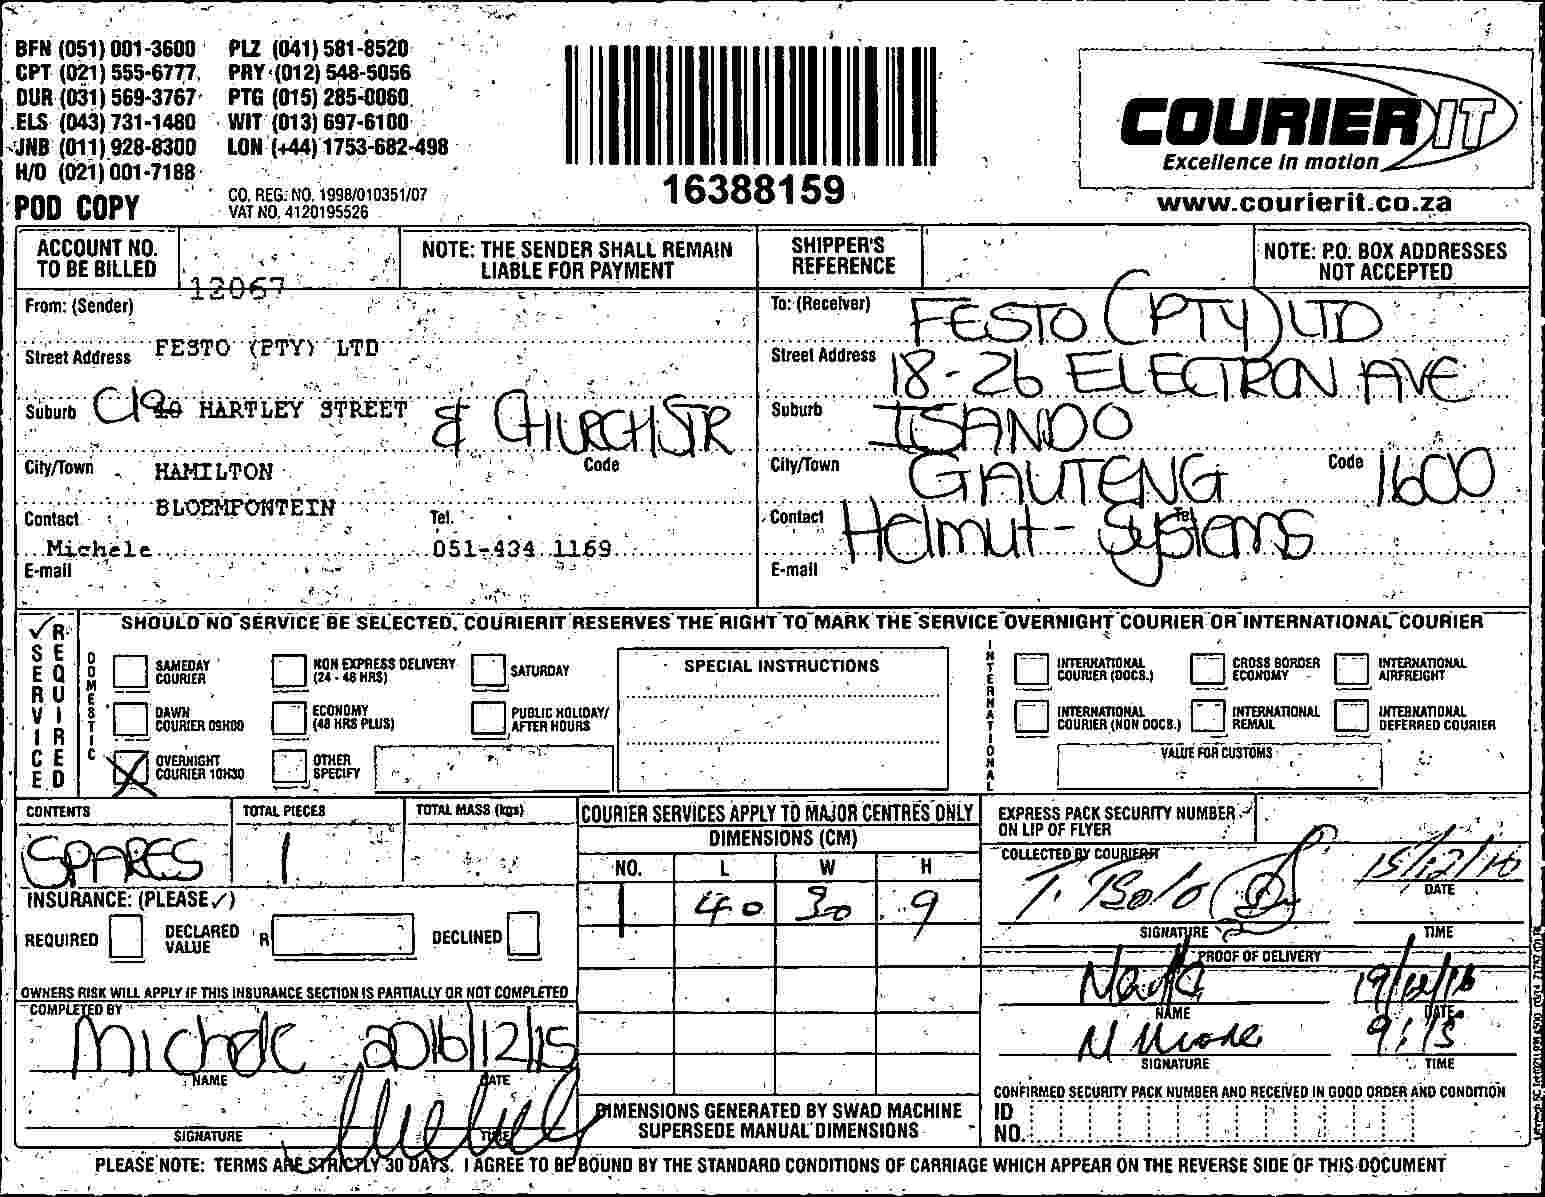 BFN (051) 001-3600 PLZ (041) 581-8520
CPT (021) 555-6777 PRY (012) 548-5056
DUR (031) 569-3767 PTG (015) 285-0060
ELS (043) 731-1480 WIT (013) 697-6100
JNB (011) 928-8300 LON (+44) 1753-682-498
H/O (021) 001-7188
POD COPY
CO. REG. NO. 1998/010351/07
VAT NO. 4120195526
16388159
COURIER IT
Excellence in motion
www.courierit.co.za
ACCOUNT NO. TO BE BILLED 12067
NOTE: THE SENDER SHALL REMAIN LIABLE FOR PAYMENT
SHIPPER'S REFERENCE
NOTE: P.O. BOX ADDRESSES NOT ACCEPTED
From: (Sender)
Street Address FESTO (PTY) LTD
Suburb HARTLEY STREET & CHURCH STR
City/Town HAMILTON Code
BLOEMFONTEIN
Contact Michele Tel. 051-434 1169
E-mail
To: (Receiver) FESTO (PTY) LTD
Street Address 18-26 ELECTRON AVE
Suburb ISANDO
City/Town GAUTENG Code 1600
Contact Helmut - Systems Tel.
E-mail
SERVICE REQUIRED
SHOULD NO SERVICE BE SELECTED, COURIERIT RESERVES THE RIGHT TO MARK THE SERVICE OVERNIGHT COURIER OR INTERNATIONAL COURIER
DOMESTIC
SAMEDAY COURIER
NON EXPRESS DELIVERY (24 - 48 HRS)
SATURDAY
DAWN COURIER 09H00
ECONOMY (48 HRS PLUS)
PUBLIC HOLIDAY/ AFTER HOURS
OVERNIGHT COURIER 10H30
OTHER SPECIFY
SPECIAL INSTRUCTIONS
INTERNATIONAL
INTERNATIONAL COURIER (DOCS.)
CROSS BORDER ECONOMY
INTERNATIONAL AIRFREIGHT
INTERNATIONAL COURIER (NON DOCS.)
INTERNATIONAL REMAIL
INTERNATIONAL DEFERRED COURIER
VALUE FOR CUSTOMS
CONTENTS SPARES
TOTAL PIECES 1
TOTAL MASS (kgs)
INSURANCE: (PLEASE ✓)
REQUIRED
DECLARED VALUE R
DECLINED
OWNERS RISK WILL APPLY IF THIS INSURANCE SECTION IS PARTIALLY OR NOT COMPLETED
COMPLETED BY
Michele 2016/12/15
NAME DATE
SIGNATURE TIME
COURIER SERVICES APPLY TO MAJOR CENTRES ONLY
DIMENSIONS (CM)
NO. L W H
1 40 30 9
DIMENSIONS GENERATED BY SWAD MACHINE SUPERSEDE MANUAL DIMENSIONS
EXPRESS PACK SECURITY NUMBER ON LIP OF FLYER
COLLECTED BY COURIERIT
T. Tsolo 15/12/16
DATE
SIGNATURE TIME
PROOF OF DELIVERY
19/12/16
NAME DATE
9:15
SIGNATURE TIME
CONFIRMED SECURITY PACK NUMBER AND RECEIVED IN GOOD ORDER AND CONDITION
ID NO.
PLEASE NOTE: TERMS ARE STRICTLY 30 DAYS. I AGREE TO BE BOUND BY THE STANDARD CONDITIONS OF CARRIAGE WHICH APPEAR ON THE REVERSE SIDE OF THIS DOCUMENT